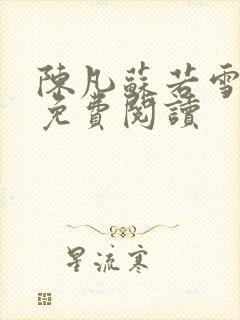 陳凡蘇若雪
免費閱讀
星流寒